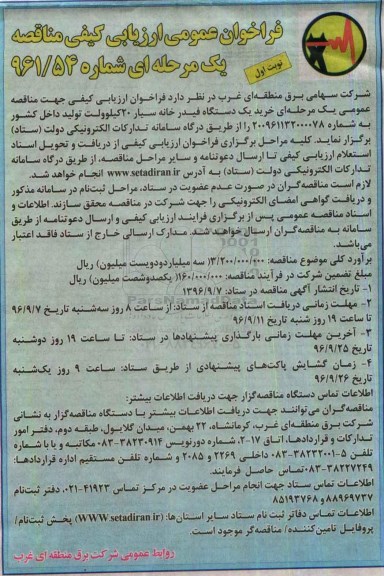 فراخوان عمومی ارزیابی کیفی مناقصه
یک مرحله ای شماره ۹۶۱/۵۴
نوبت اول
شرکت سهامی برق منطقه‌ای غرب در نظر دارد فراخوان ارزیابی کیفی جهت مناقصه
عمومی یک مرحله‌ای خرید یک دستگاه فیدر خانه سیار ۲۰کیلوولت تولید داخل کشور
به شماره ۲۰۰۹۶۱۱۳۲۰۰۰۰۷۸ را از طریق درگاه سامانه تدارکات الکترونیکی دولت (ستاد)
برگزار نماید. کلیه مراحل برگزاری فراخوان ارزیابی کیفی از دریافت و تحویل اسناد
استعلام ارزیابی کیفی تا ارسال دعوتنامه و سایر مراحل مناقصه، از طریق درگاه سامانه
تدارکات الکترونیکی دولت (ستاد) به آدرس www.setadiran.ir انجام خواهد شد.
لازم است مناقصه‌گران در صورت عدم عضویت در ستاد، مراحل ثبت‌نام در سامانه مذکور
و دریافت گواهی امضای الکترونیکی را جهت شرکت در مناقصه محقق سازند. اطلاعات و
اسناد مناقصه عمومی پس از برگزاری فرایند ارزیابی کیفی و ارسال دعوتنامه از طریق
سامانه به مناقصه‌گران ارسال خواهد شد. مدارک ارسالی خارج از ستاد فاقد اعتبار
می‌باشد.
برآورد کلی موضوع مناقصه: ۳/۲۰۰/۰۰۰/۰۰۰( سه میلیاردودویست میلیون) ریال
مبلغ تضمین شرکت در فرآیند مناقصه: ۱۶۰/۰۰۰/۰۰۰( یکصدوشصت میلیون) ریال
۱- تاریخ انتشار آگهی مناقصه در ستاد: ۱۳۹۶/۹/۷
۲- مهلت زمانی دریافت اسناد مناقصه از ستاد: از ساعت ۸ روز سه‌شنبه تاریخ ۹۶/۹/۷
تا ساعت ۱۹ روز شنبه تاریخ ۹۶/۹/۱۱
۳- آخرین مهلت زمانی بارگذاری پیشنهادها در ستاد: تا ساعت ۱۹ روز دوشنبه
تاریخ ۹۶/۹/۲۵
۴- زمان گشایش پاکت‌های پیشنهادی از طریق ستاد: ساعت ۹ روز یک‌شنبه
تاریخ ۹۶/۹/۲۶
اطلاعات تماس دستگاه مناقصه‌گزار جهت دریافت اطلاعات بیشتر:
مناقصه‌گران می‌توانند جهت دریافت اطلاعات بیشتر با دستگاه مناقصه‌گزار به نشانی
شرکت برق منطقه‌ای غرب، کرمانشاه، ۲۲ بهمن، میدان گلایول، طبقه دوم، دفتر امور
تدارکات و قراردادها، اتاق ۱۷-۲، شماره دورنویس ۳۸۲۳۰۹۱۴-۰۸۳ مکاتبه و یا با شماره
تلفن ۵-۳۸۲۳۲۰۰۱-۰۸۳ داخلی ۲۲۶۹ و ۲۰۸۵ و شماره تلفن مستقیم اداره قراردادها:
۳۸۲۲۷۲۴۹-۰۸۳تماس حاصل فرمایند.
اطلاعات تماس ستاد جهت انجام مراحل عضویت در مرکز تماس ۴۱۹۲۳-۰۲۱، دفتر ثبت‌نام
۸۸۹۶۹۷۳۷ و ۸۵۱۹۳۷۶۸
اطلاعات تماس دفاتر ثبت نام ستاد سایر استان‌ها: (www.setadiran.ir) بخش ثبت‌نام/
پروفایل تامین‌کننده/ مناقصه‌گر موجود است.
روابط عمومی شرکت برق منطقه ای غرب